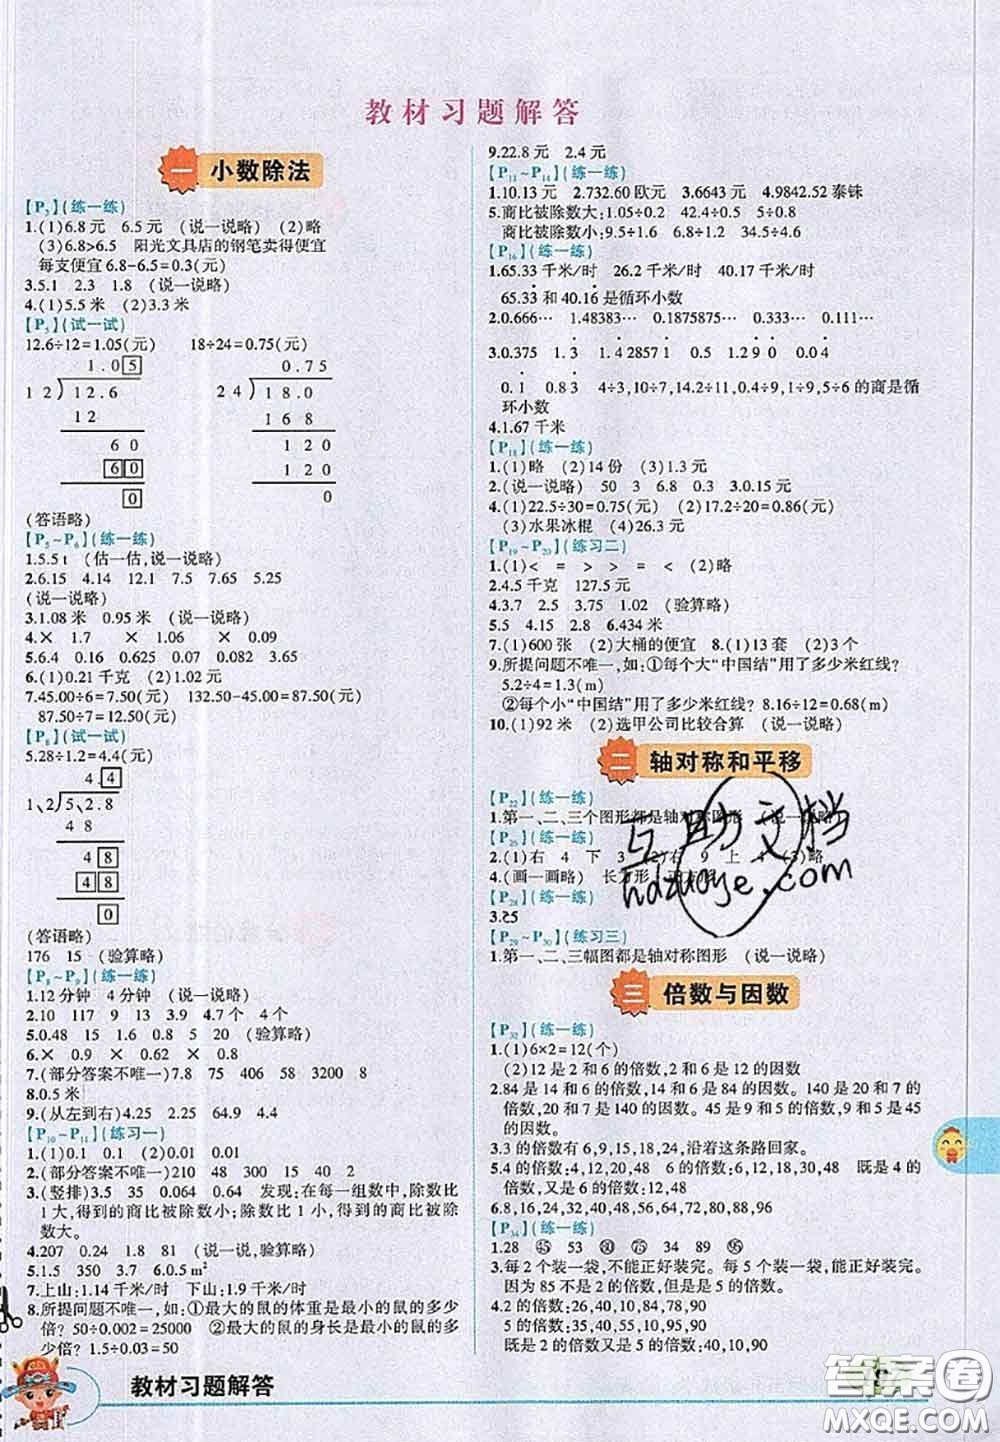 教材习题解答
一 小数除法
【P3】(练一练)
1.(1)6.8元 6.5元 (说一说略) (2)略
(3)6.8>6.5 阳光文具店的钢笔卖得便宜
每支便宜6.8-6.5=0.3(元)
3.5.1 2.3 1.8 (说一说略)
4.(1)5.5米 (2)3.3米
【P5】(试一试)
12.6÷12=1.05(元) 18÷24=0.75(元)
1.05 0.75
12 12.6 24 18.0
12 168
60 120
60 120
0 0
(答语略)
【P5~P6】(练一练)
1.5.5t (估一估,说一说略)
2.6.15 4.14 12.1 7.5 7.65 5.25
(说一说略)
3.1.08米 0.95米 (说一说略)
4.× 1.7 × 1.06 × 0.09
5.6.4 0.16 1.25 0.34 0.16
6.(1)0.21千克 (2)1.02元
7.45.00÷6=7.50(元) 132.50-45.00=87.50(元)
87.50÷7=12.50(元)
【P8】(试一试)
5.28÷1.2=4.4(元)
4.4
1.2 5.2.8
48
48
48
0
(答语略)
176 15 (验算略)
【P8~P9】(练一练)
1.12分钟 4分钟 (说一说略)
2.10 117 9 13 3.9 4.7个 4个
5.0.48 15 0.49 0.8 5 20 (验算略)
6.× 0.9 × 0.62 × 0.8
7.(部分答案不唯一)7.8 75 456 58 3200 8
8.0.5米
9.(从左到右)4.25 2.25 64.9 4.4
【P10~P11】(练习一)
1.(1)0.1 0.1 (2)0.01 0.01
2.(部分答案不唯一)210 48 300 15 40
3.(竖排)3.5 35 0.064 0.64 发现:在每一组数中,除数比
1大,得到的商比被除数小;除数比1小,得到的商比被除
数大。
4.207 0.24 1.8 81 (说一说,验算略)
5.1.5 350 3.7 6.0.5m²
7.上山:1.14千米/时 下山:1.9千米/时
8.所提问题不唯一,如:①最大的鼠的体重是最小的鼠的多少
倍?50÷0.002=25000 ②最大的鼠的身长是最小的鼠的多
少倍?1.5÷0.03=50
9.22.8元 2.4元
【P11~P14】(练一练)
1.10.13元 2.732.60欧元 3.6643元 4.9842.52泰铢
5.商比被除数大:1.05÷0.2 42.4÷0.5 5÷0.8
商比被除数小:9.5÷1.6 6.8÷1.7 34.5÷4.6
【P16】(练一练)
1.65.33千米/时 26.2千米/时 40.17千米/时
65.33和40.16是循环小数
2.0.666… 1.48383… 0.1875875… 0.333… 0.111…
3.0.375 1.3̇ 1.4̇ 1.4̇28571̇ 0.5 1.29̇0̇ 0.04̇
0.1̇ 0.83̇ 4÷3,10÷7,14.2÷11,0.4÷9,1÷9,5÷6的商是循
环小数
4.1.67千米
【P18】(练一练)
1.(1)略 (2)14份 (3)1.3元
2.(说一说略) 50 3 6 0.8 3.0.15元
4.(1)22.5÷30=0.75(元) (2)17.2÷20=0.86(元)
(3)水果冰棍 (4)26.3元
【P19~P20】(练习二)
1.(1)< = > > = < (2)略
2.4.5千克 127.5元
4.3.7 2.5 3.75 1.02 (验算略)
5.5 4.15 2.8 6.434米
7.(1)600张 (2)大桶的便宜 8.(1)13套 (2)3个
9.所提问题不唯一,如:①每个大“中国结”用了多少米红线?
5.2÷4=1.3(m)
②每个小“中国结”用了多少米红线?8.16÷12=0.68(m)
10.(1)92米 (2)选甲公司比较合算 (说一说略)
二 轴对称和平移
【P22】(练一练)
1.第一、二、三个图形都是轴对称图形 (说一说略)
【P26】(练一练)
2.(1)右 4 下 3 (2)右 9 上 4 (3)略
4.(画一画略) 长方形
【P28】(练一练)
3.25
【P29~P30】(练习三)
1.第一、二、三幅图都是轴对称图形 (说一说略)
三 倍数与因数
【P32】(练一练)
1.(1)6×2=12(个)
(2)12是2和6的倍数,2和6是12的因数
2.84是14和6的倍数,14和6是84的因数。140是20和7的
倍数,20和7是140的因数。45是9和5的倍数,9和5是45
的因数。
3.3的倍数有6,9,15,18,24,沿着这条路回家。
5.4的倍数:4,12,20,48 6的倍数:6,12,18,30,48 既是4的
倍数,又是6的倍数:12,48
6.8,16,24,32,40,48,56,64,72,80,88,96
【P34】(练一练)
1.28 45 53 80 75 34 89 95
3.每2个装一袋,不能正好装完。每5个装一袋,能正好装完。
因为85不是2的倍数,但是是5的倍数。
4.2的倍数:26,40,10,84,38,90
5的倍数:35,40,10,55,85,90
既是2的倍数又是5的倍数:40,10,90
互助文档
hdzuoye.com
教材习题解答
答案圈
MXQE.COM